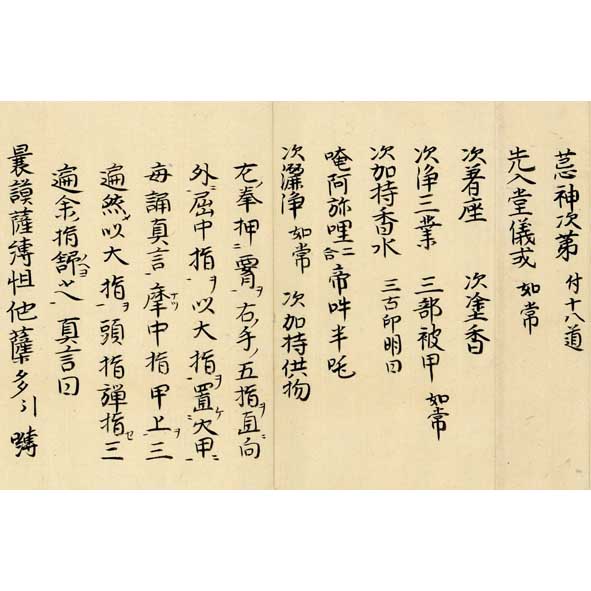 荒神次第 付十八道
先入堂儀式 如常
次着座 次塗香
次浄三業 三部被甲 如常
次加持香水 三古印明曰
唵阿弥哩二合帝吽半吒
次灑浄 如常 次加持供物
左ノ拳押ニ右ノ手ノ五指ヲ直向ニ
外ニ屈中指ヲ以大指ヲ置ケ穴甲ニ
毎誦真言ヲ摩ナツ中指甲上ヲ三
遍然ノ以大指ヲ頭指弾指セ三
遍余ノ指舒之 真言曰
曩謨薩縛怛他蘖多引嚩